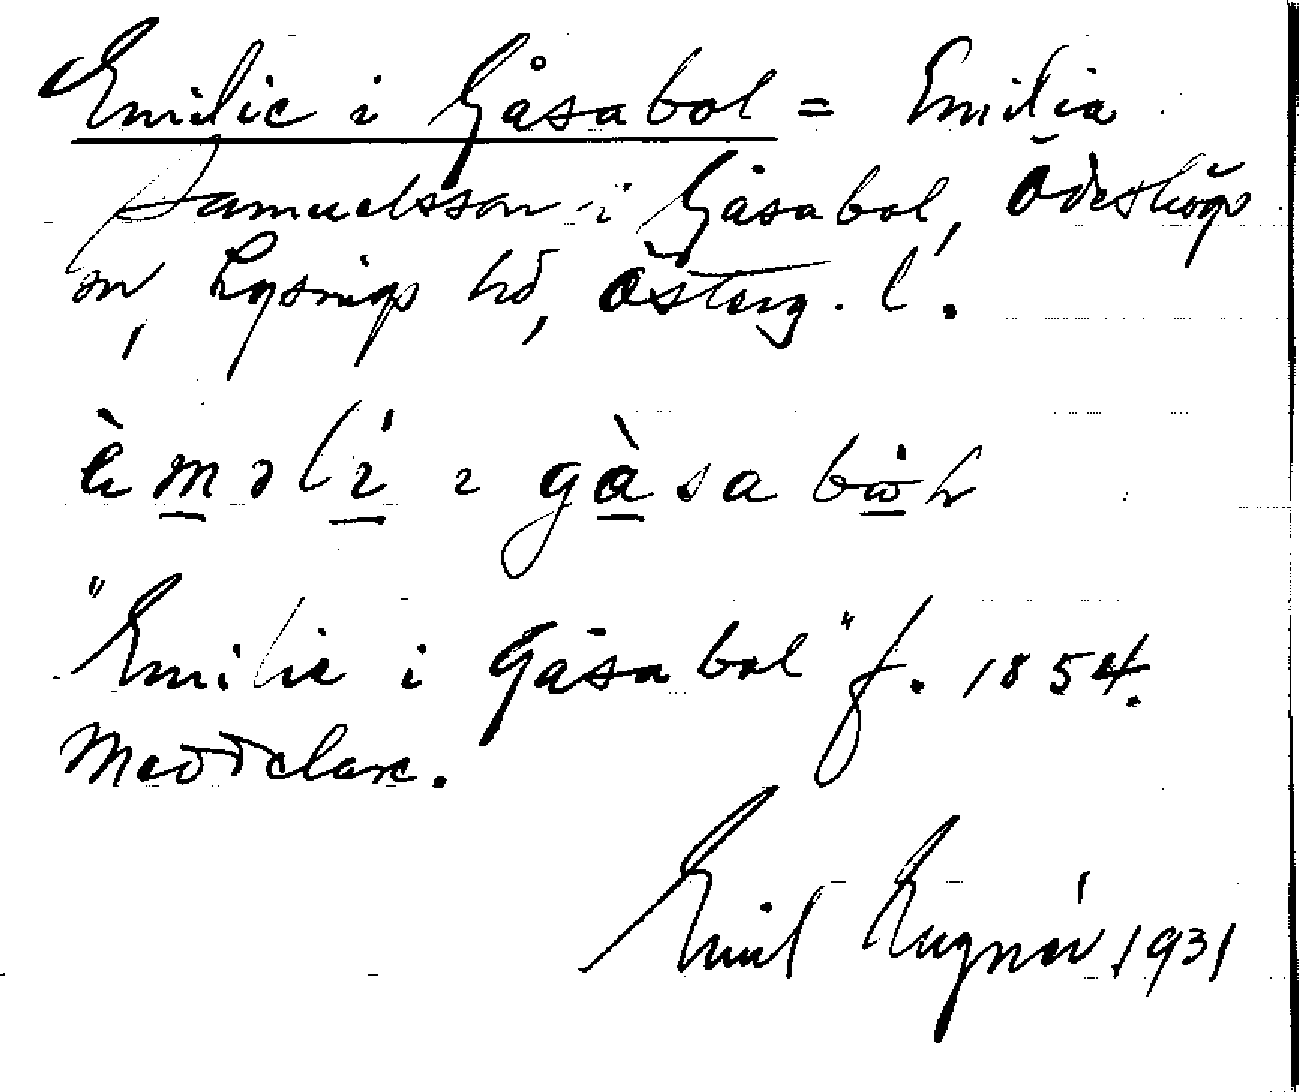 Emilie i Gåsabol = Emilia
Samuelsson i Gåsabol, Ödeshögs
sn, Lysings hd, Österg. l.
i gàsa
"Emilie i Gåsabol" f. 1854.
Meddelare.
Emil 1931